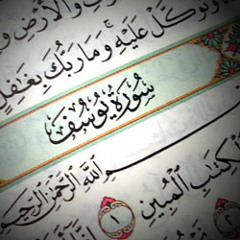 وَالْأَرْضِ و
وَتَوَكَّلْ عَلَيْهِ ۚ وَمَا رَبُّكَ بِغَافِلٍ
سُورَةُ يُوسُفَ
بِسْمِ اللَّهِ الرَّحْمَٰنِ الرَّحِيمِ
الْكِتَابِ الْمُبِينِ ١ إِنَّا
٢